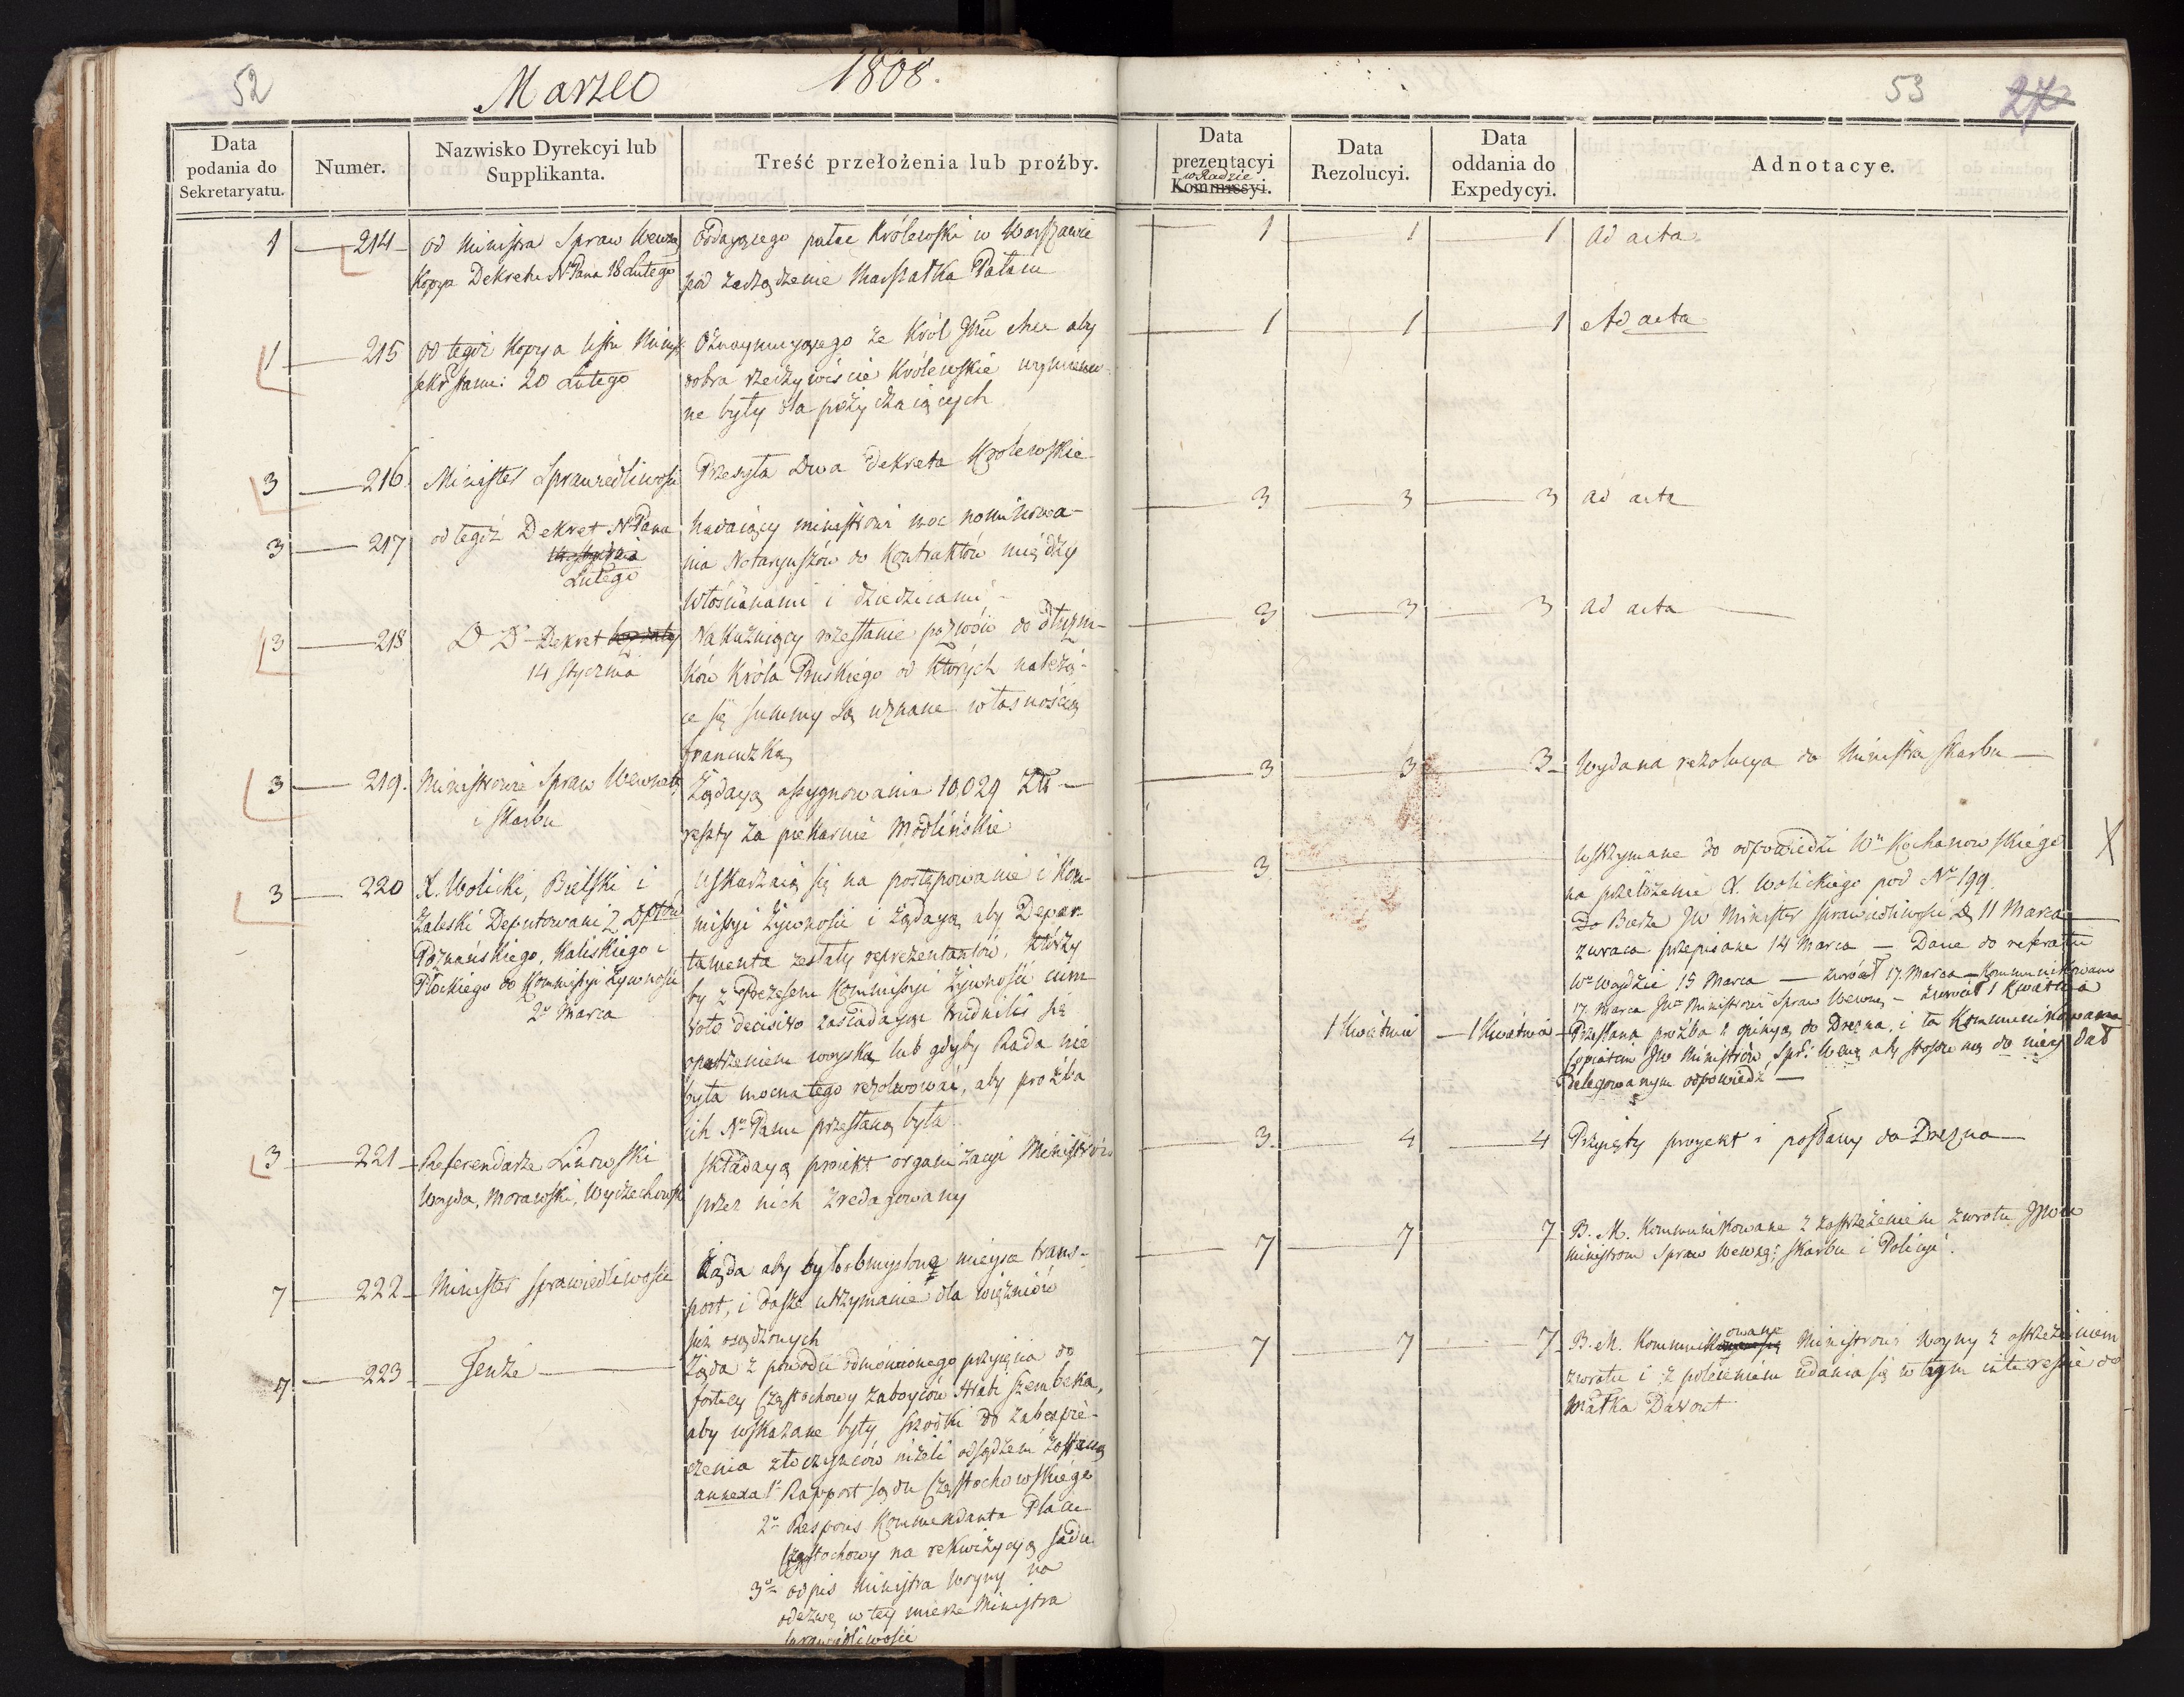 52
Marzec 1808.
Data podania do Sekretaryatu.
Numer.
Nazwisko Dyrekcyi lub Supplikanta.
Treść przełożenia lub proźby.
1 214 od Ministra Spraw Wewnę
Kopya Dekretu N. Pana 18 Lutego
oddającego pałac Królewski w Warszawie
pod zarządzenie Marszałka Pałacu
1 215 od tegoż Kopya listu Minist.
Sekr. stanu: 20 Lutego
Oznaymującego że Król Jmć chce aby
dobra rzeczywiście Królewskie wymienio-
ne były dla pożyczaiących
3 216 Minister Sprawiedliwości
Przesyła Dwa Dekreta Królewskie
3 217 od tegoż Dekret N. Pana
Lutego
Nadaiący ministrowi moc nominowa-
nia Notaryuszów do Kontraktów między
Włościanami i dziedzicami
3 218 D D Dekret
14 Stycznia
Nakazuiący rozesłanie pozwów do dłużni-
ków Króla Pruskiego od których należą-
ce się summy są uznane własnością
francuzką
3 219. Ministrowie Spraw Wewnętz
i Skarbu
Żądaią assygnowania 10,029 Złł
reszty za piekarnie Modlińskie
3 220 X. Wolicki, Bielski i
Zaleski Deputowani z Dpttu
Poznańskiego, Kaliskiego i
Płockiego do Kommissyi Żywności
2 Marca
Uskarżaią się na postępowanie i Kom-
missyi Żywności i żądaią aby Depar-
tamenta zesłały reprezentantów, którzy
by z Prezesem Kommissyi Żywności cum
voto decisivo zasiadaiąc trudnili się
opatrzeniem woyska, lub gdyby Rada nie
była mocna tego rezolwować, aby proźba
ich N. Panu przesłaną była
3 221 Referendarze Linowski
Woyda, Morawski, Wyczechowski
składaią proiekt organizacyi Ministrów
przez nich zredagowany
7 222 Minister Sprawiedliwości
Żąda aby było obmyślone mieysce trans-
port, i dalsze utrzymanie dla więzniów
już osądzonych
7 223 Tenże
Żąda z powodu odmówionego przyięcia do
fortecy Częstochowy zaboyców Hrabi Szembeka,
aby wskazane były srzodki do zabespie-
czenia złoczyńców niżeli odsądzeni zostaną
annexa 1° Rapport sądu Częstochowskiego
2° Respons Kommendanta Placu
Częstochowy na rekwizycyą sądu
3° odpis Ministra Woyny na
odezwę w tey mierze Ministra
sprawiedliwości
53
27
Data prezentacyi w Radzie Kommissyi.
Data Rezolucyi.
Data oddania do Expedycyi.
Adnotacye.
1 1 1 ad acta
1 1 1 Ad acta
3 3 3 ad acta
3 3 3 ad acta
3 3 3 Wydana rezolucya do Ministra Skarbu
3 wstrzymane do odpowiedzi Wo Kochanowskiego
na przełożenie X. Wolickiego pod No 199.
Do Bierze JW Minister Sprawiedliwości D. 11 Marca
zwraca przepisane 14 Marca — Dane do referatu
Wo Woydzie 15 Marca — zwrócił 17. Marca — Kommunikowane
17. Marca JWo Ministrowi Spraw Wewnę — zwrócił 1 Kwietnia
1 Kwietnia 1 Kwietnia Przesłana proźba z opinią do Drezna, i ta Kommunikowana
JW Ministrów Spr: Wewnę aby stosowną do niey dał
delegowanym odpowiedź
3. 4 4 Przyięty proyekt i posłany do Drezna
7 7 7 B. M. Kommunikowane z zastrzeżeniem zwrotu JWom
ministrom Spraw Wewnę: Skarbu i Policyi.
7 7 7 B. M. Kommunikowane Ministrowi Woyny z ostrzeżeniem
zwrotu i z poleceniem udania się w tym interessie do
Małka Davout
X